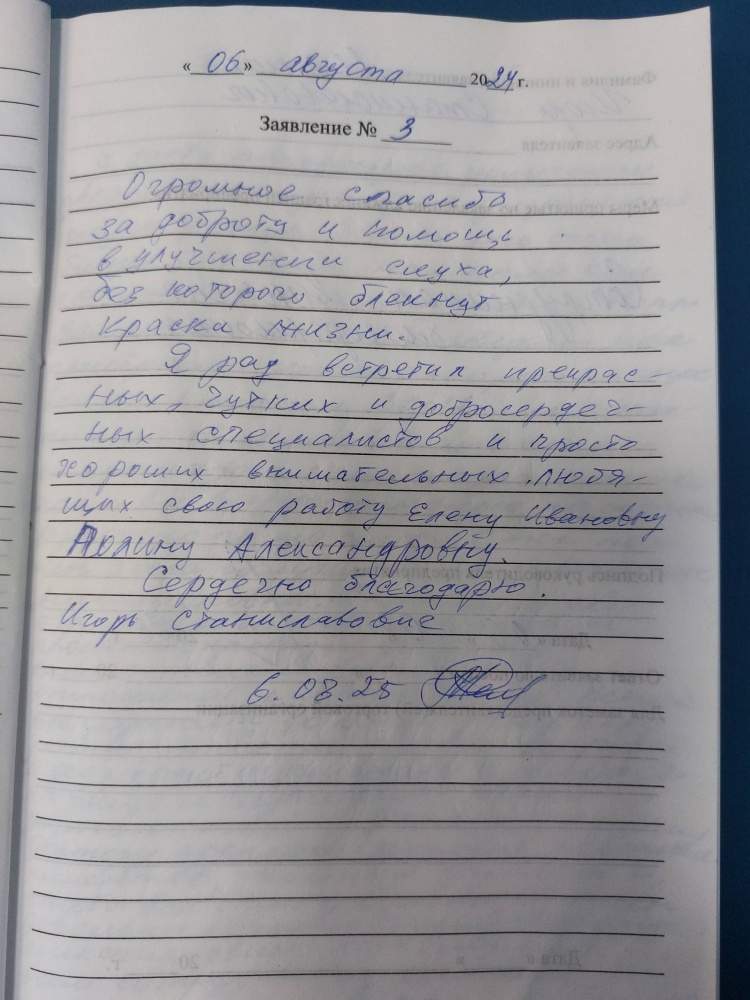 «06» августа 2024 г.
Заявление № 3
Огромное спасибо
за доброту и помощь
в улучшении слуха,
без которого блекнут
краски жизни.
Я рад встретил прекрас-
ных, чутких и добросердеч-
ных специалистов и просто
хороших внимательных, любя-
щих свою работу Елену Ивановну
Полину Александровну.
Сердечно благодарю.
Игорь Станиславович
6.08.25